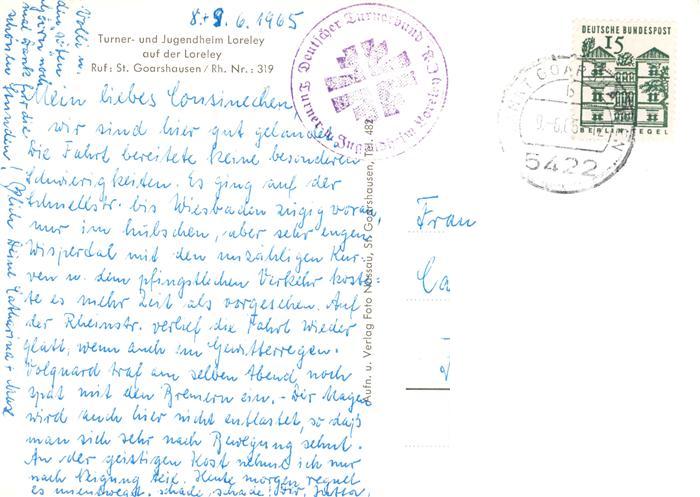 8.+9.6.1965
Turner- und Jugendheim Loreley
auf der Loreley
Ruf: St. Goarshausen / Rh. Nr.: 319
Mein liebes Consinechen,
wir sind hier gut gelandet.
Die Fahrt bereitete keine besonderen
Schwierigkeiten. Es ging auf der
Schnellstr. bis Wiesbaden zügig voran,
nur im hübschen, aber sehr engen
Wispertal mit den unzähligen Kur-
ven u. dem pfingstlichen Verkehr koste-
te es mehr Zeit als vorgesehen. Auf
der Rheinstr. verlief die Fahrt wieder
glatt, wenn auch im Gewitterregen.
Volquard traf am selben Abend noch
spät mit den Bremern ein. - Der Magen
wird auch hier nicht entlastet, so daß
man sich sehr nach Bewegung sehnt.
An der geistigen Kost nehme ich nur
nach Neigung teil. Heute morgen regnet
es unentwegt. schade, schade! Wir
Volli u.
den süßen
noch
mal Dank für die
schönen Stunden! Deine Catharina +
Deutscher Turnerbund
Turner- u. Jugendheim Loreley
Aufn. u. Verlag Foto Nassau, St. Goarshausen, Tel. 482
DEUTSCHE BUNDESPOST
15
BERLIN-TEGEL
ST GOARSHAUSEN
b
9.-6.65
5422
Frau
Ca